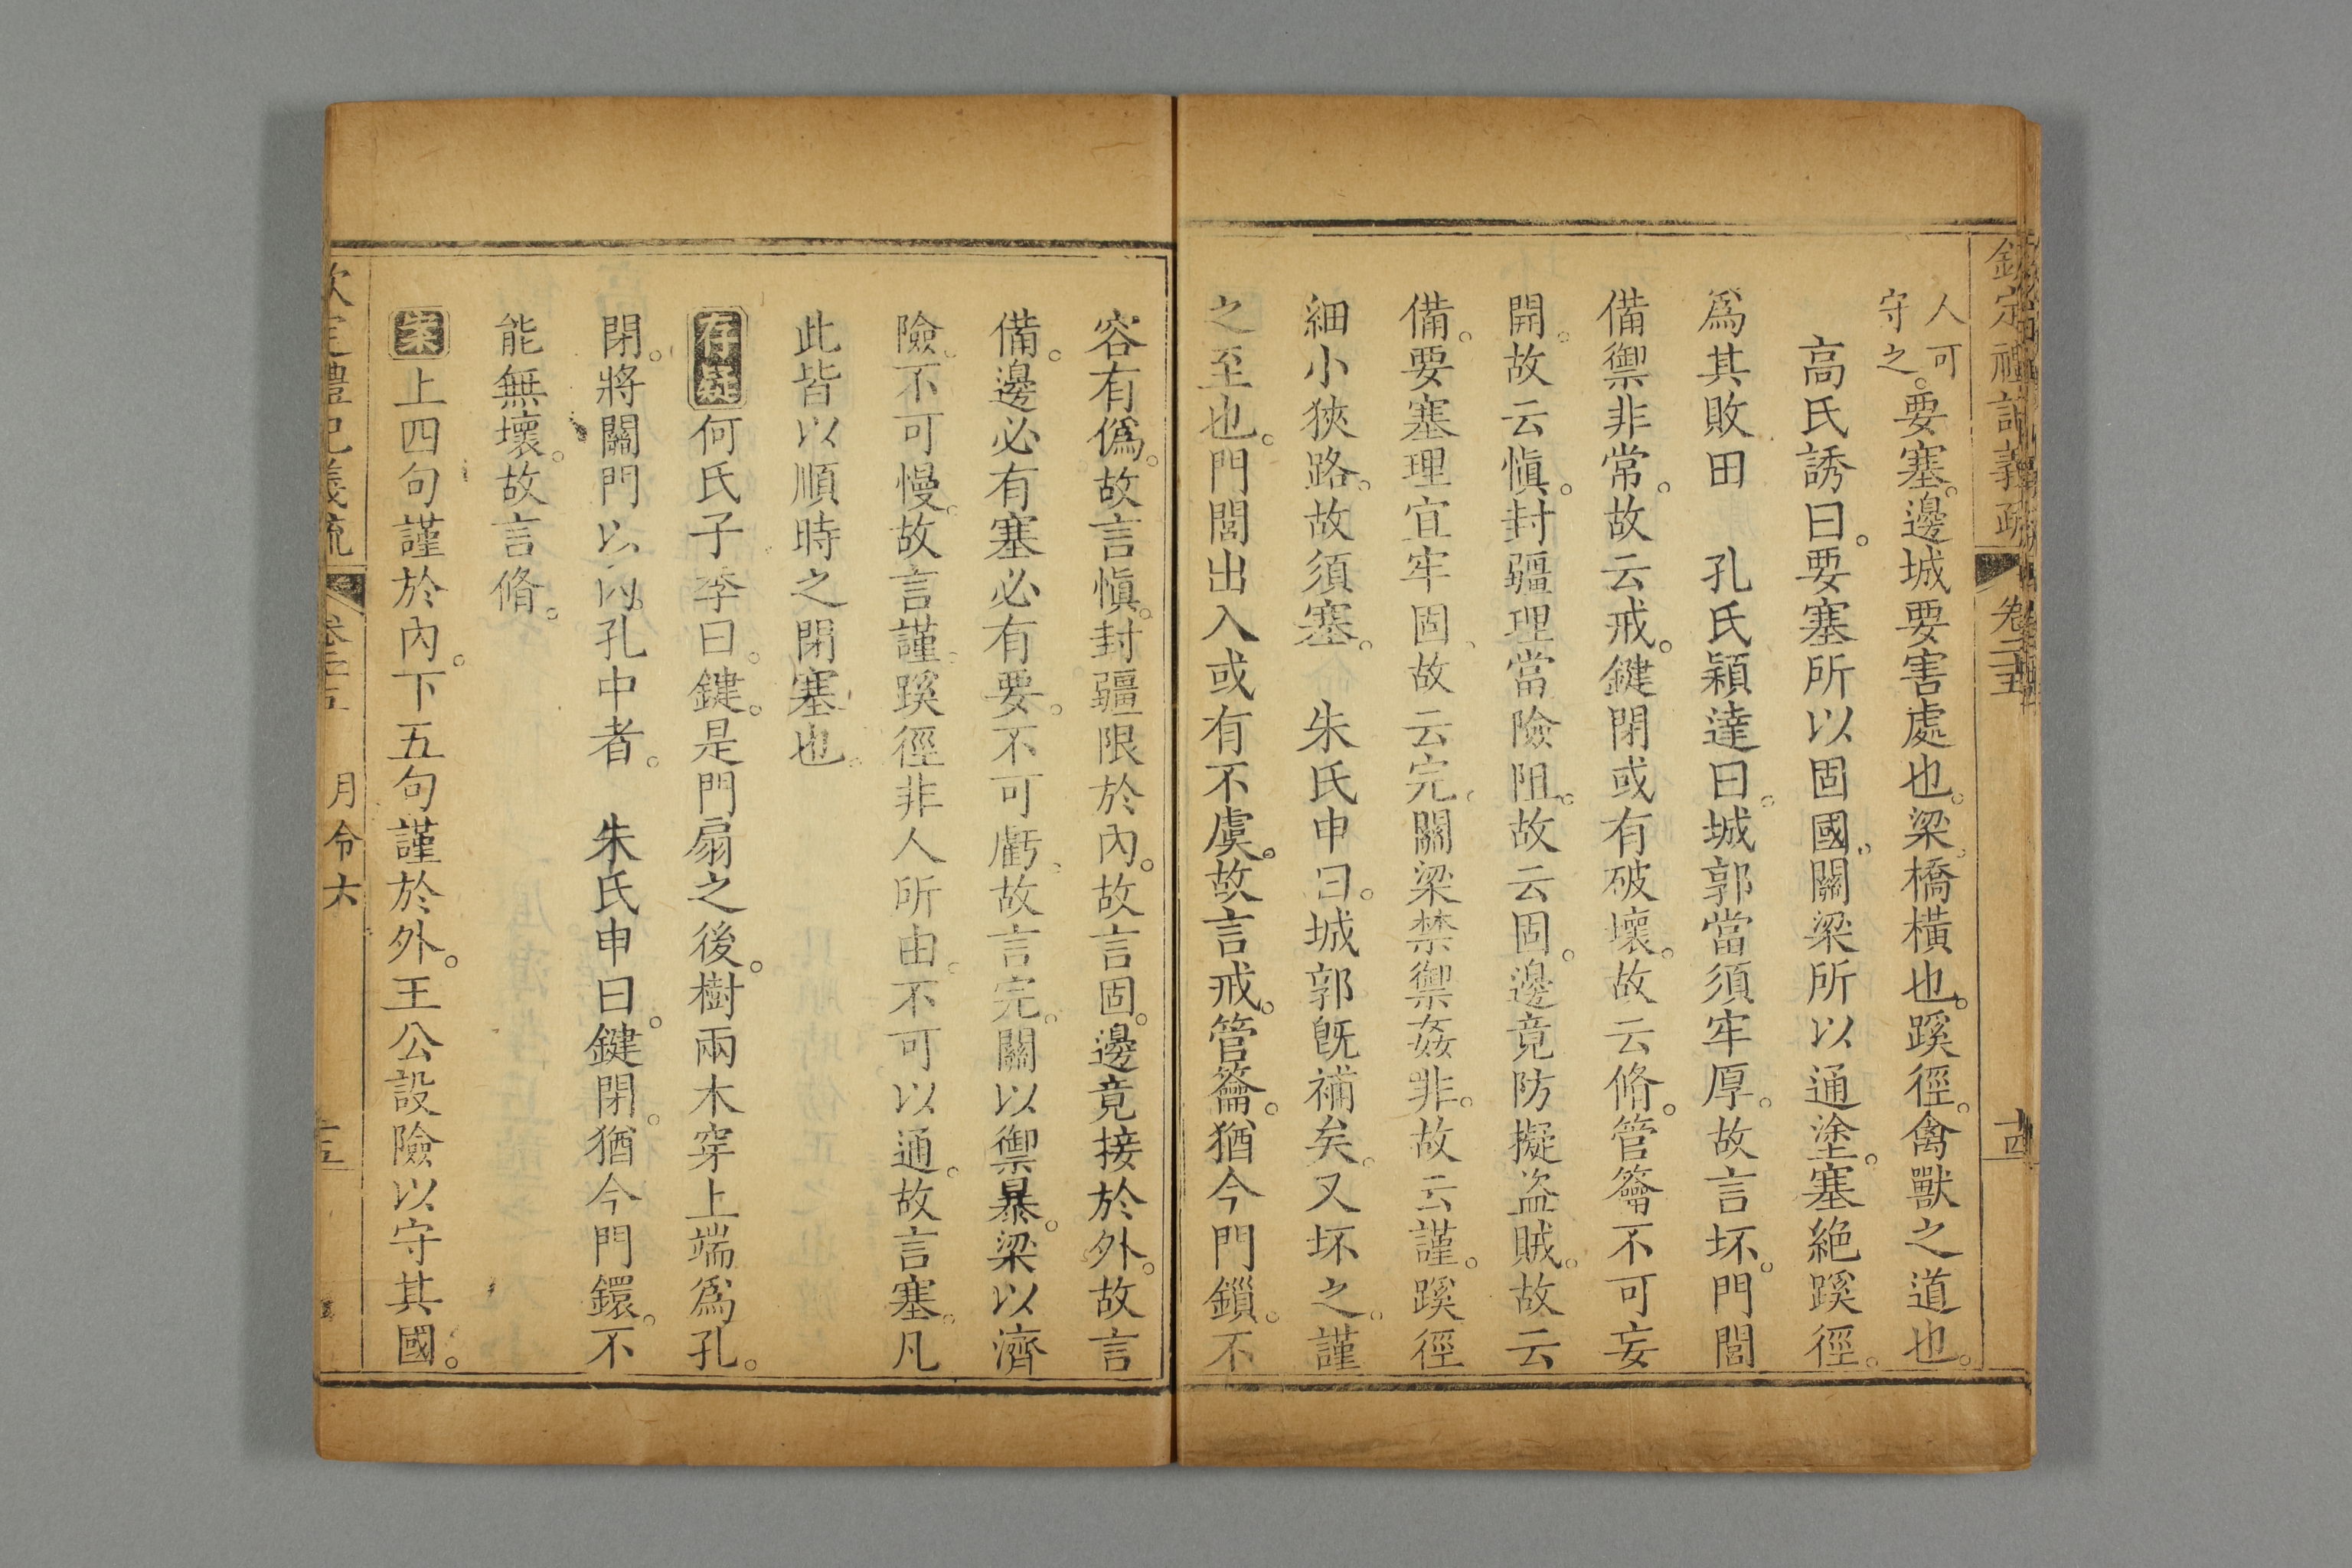 欽定禮記義疏 卷二十五 十四
人可
守之。要塞。邊城要害處也。梁。橋橫也。蹊徑。禽獸之道也。
高氏誘曰。要塞所以固國。關梁所以通塗。塞絕蹊徑。
爲其敗田 孔氏穎達曰。城郭當須牢厚。故言坏。門閭
備禦非常。故云戒。鍵閉或有破壞。故云脩。管籥不可妄
開。故云愼。封疆理當險阻。故云固。邊竟防擬盜賊。故云
備。要塞理宜牢固。故云完。關梁禁禦姦非。故云謹。蹊徑
細小狹路。故須塞。 朱氏申曰。城郭旣補矣。又坏之。謹
之至也。門閭出入或有不虞。故言戒。管籥。猶今門鎖。不
容有僞。故言愼。封疆限於內。故言固。邊竟接於外。故言
備。邊必有塞必有要。不可虧。故言完。關以禦暴。梁以濟
險。不可慢。故言謹。蹊徑非人所由。不可以通。故言塞。凡
此皆以順時之閉塞也。
存疑何氏子季曰。鍵。是門扇之後。樹兩木穿上端爲孔。
閉。將關門以內孔中者。 朱氏申曰。鍵閉。猶今門鐶。不
能無壞。故言脩。
案上四句謹於內。下五句謹於外。王公設險以守其國。
欽定禮記義疏 卷二十五 月令六 十五